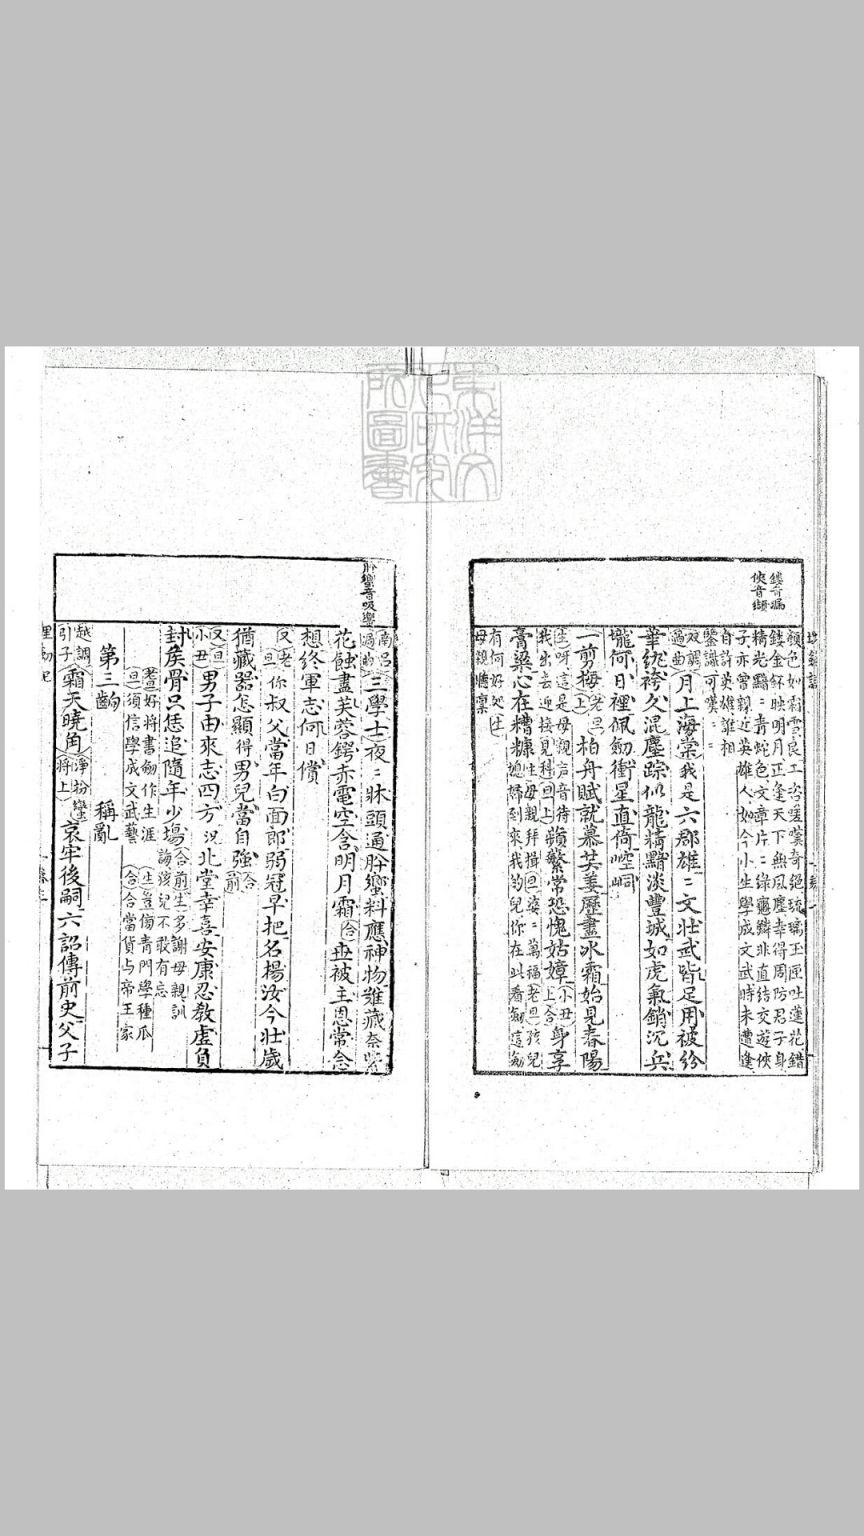 鏤音漏
俠音纈
顏色如霜雪良工咨嗟嘆奇絕琉璃玉匣吐蓮花錯
鏤金環映明月正逢天下無風塵幸得周防君子身
精光黯＝青蛇色文章片＝綠龜鱗非直結交遊俠
子亦曾親近英雄人如今小生學成文武時未遭逢
自許英雄誰相
鑒識可嘆＝＝
雙調過曲 月上海棠 我是六郡雄＝文壯武皆足用被紛
華紈袴久混塵踪似龍精黯淡豐城如虎氣銷沉兵
壠何日裡佩劒衝星直倚崆峒
一剪梅 老旦上 柏舟賦就慕共姜歷盡冰霜始見春陽
生呀這是母親声音待
我出去迎接見科旦上 蘋蘩常恐愧姑嫜 小丑上合 身享
膏粱心在糟糠 生母親拜揖旦婆＝萬福老旦孩兒
媳婦到來我的兒你在此看劒這劒
有何好処生
母親聽禀
肹蠁音吸響
南呂過曲 三學士 夜＝牀頭通肹蠁料應神物難藏奈
花蝕盡芙蓉鍔赤電空含明月霜 合 世被主恩常念
想終軍志何日償
又老旦 你叔父當年白面郎弱冠早把名楊汝今壯歲
猶藏器怎顯得男兒當自強 合前
又旦小丑 男子由來志四方況北堂幸喜安康忍教虛負
封矦骨只恁追隨年少場 合前生多謝母親訓
誨孩兒不敢有忘
老旦好將書劒作生涯 生豈傚青門學種瓜
旦須信學成文武藝 合合當貨与帝王家
第三齣 稱亂
越調引子 霜天曉角 淨扮蠻將上 哀牢後嗣六詔傳前史父子